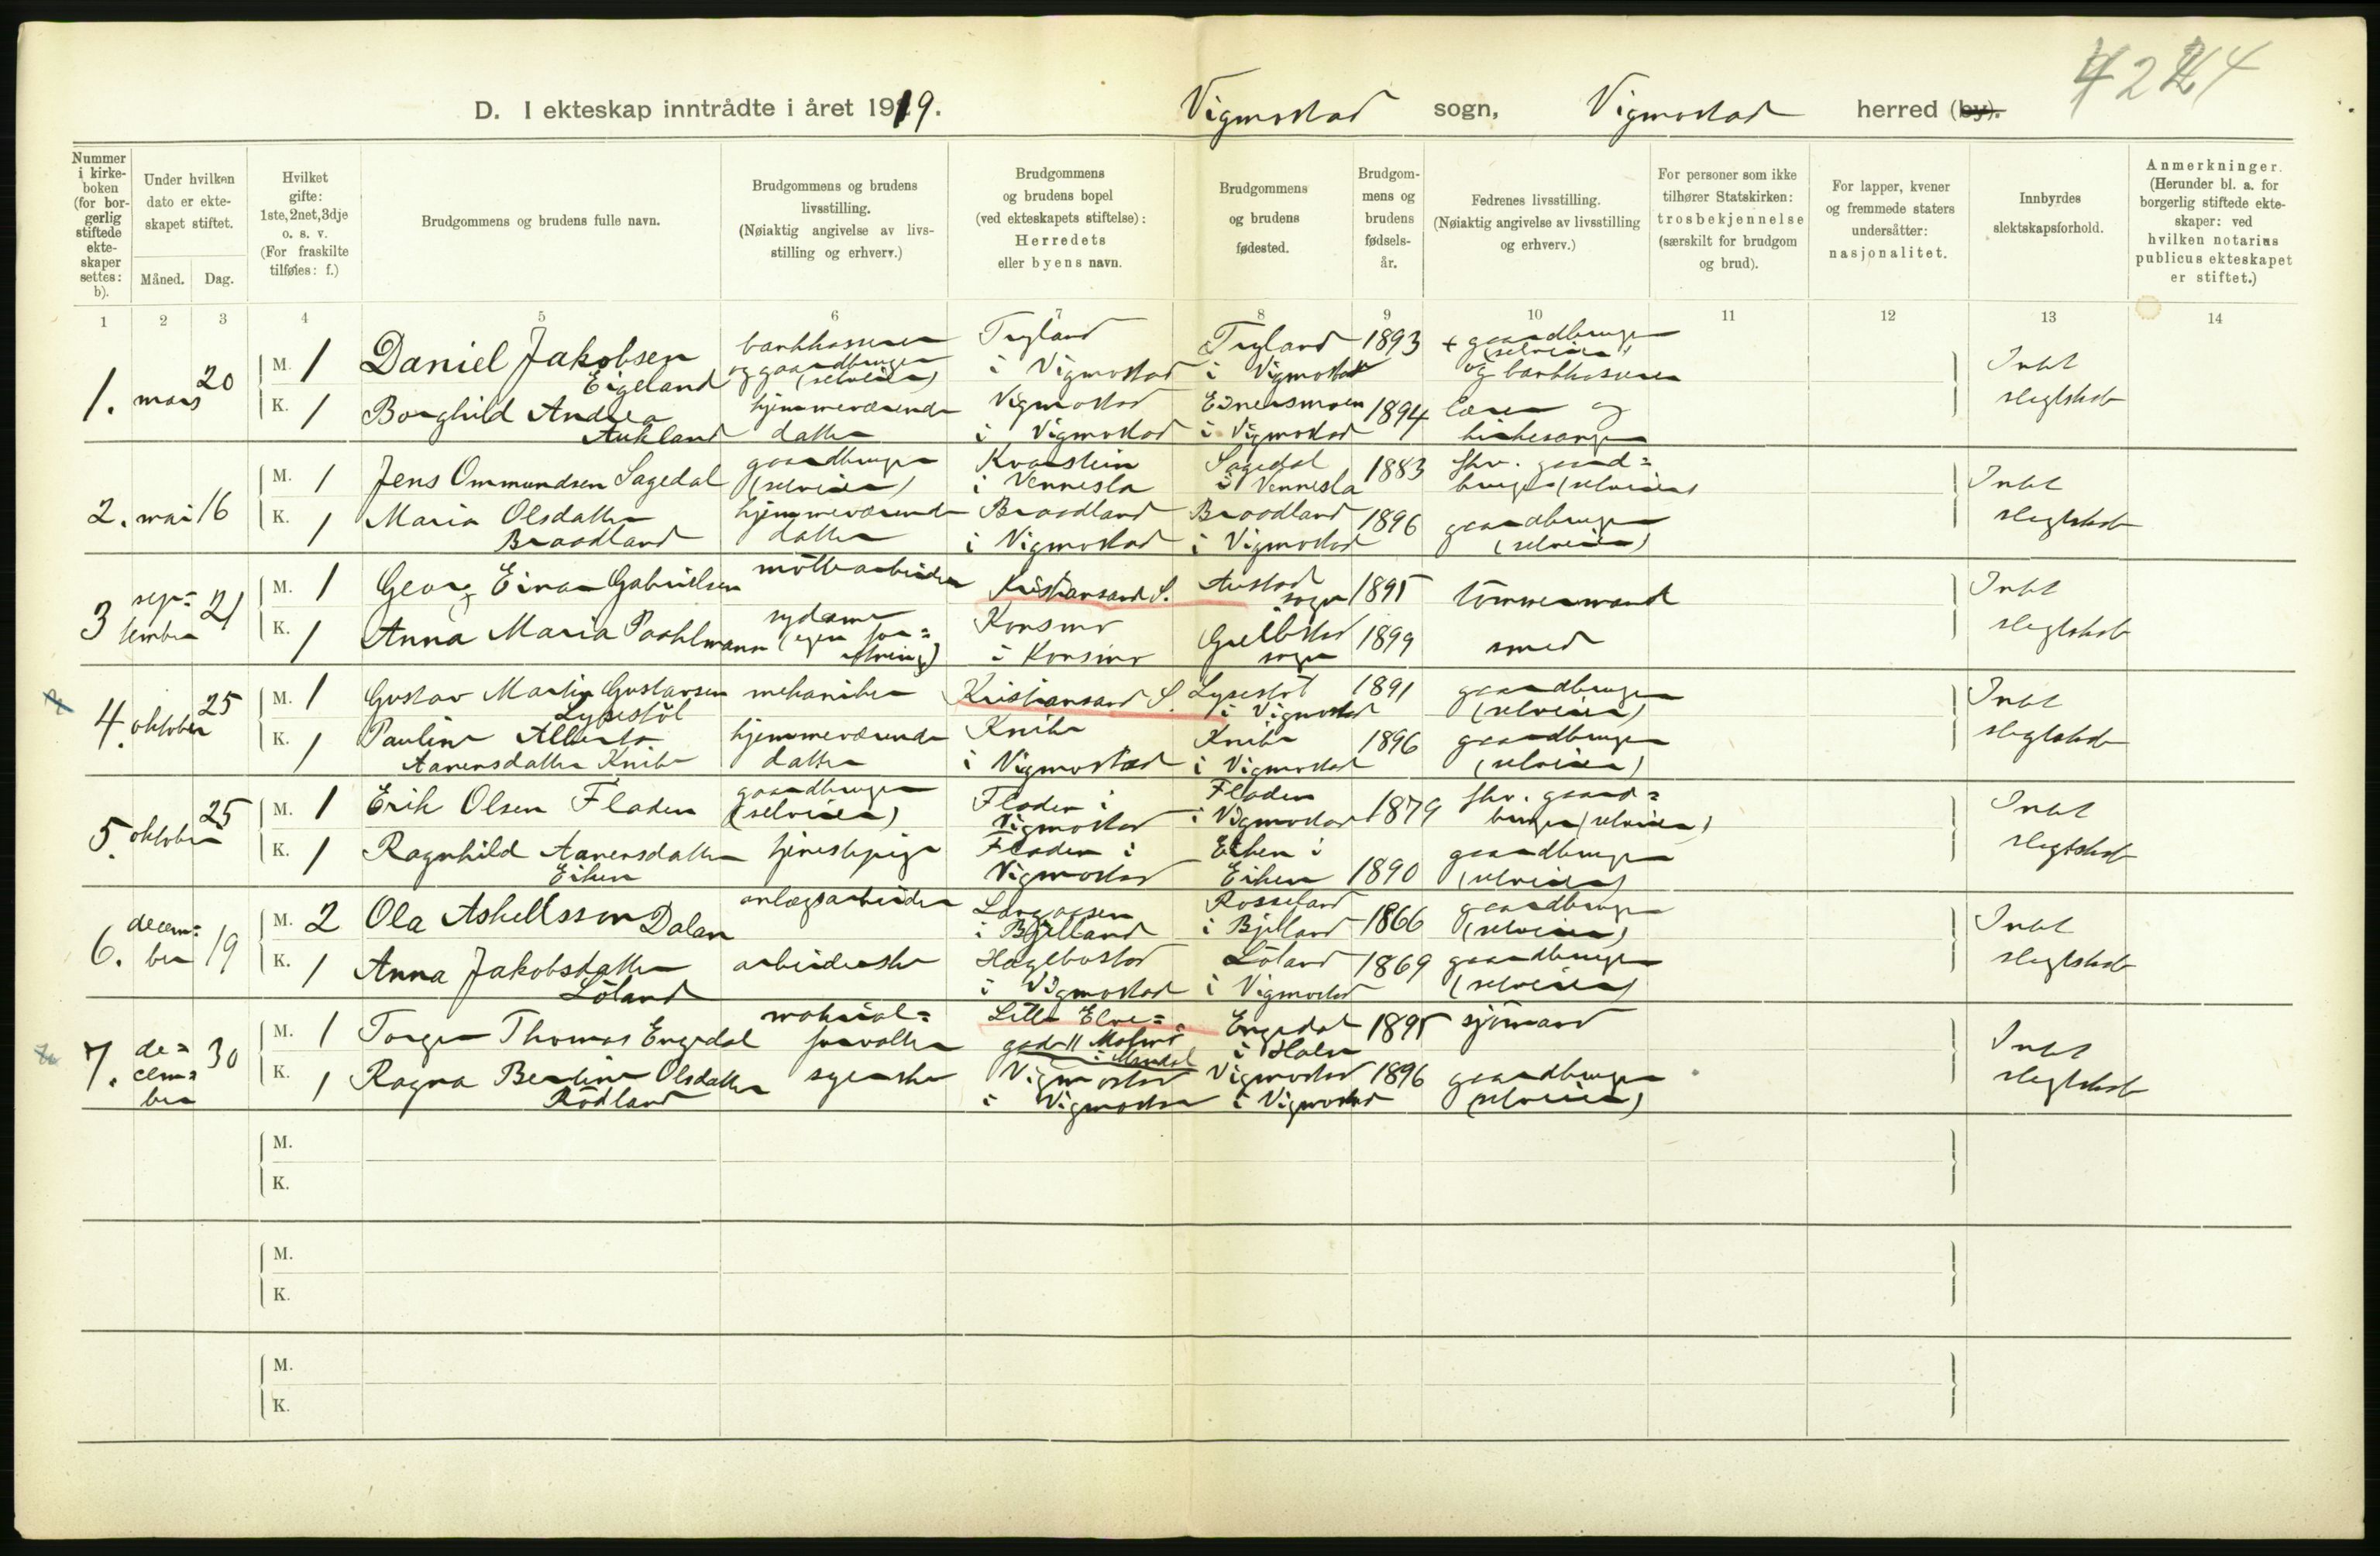 D. I ekteskap inntrådte i året 1919. Vigmostad sogn, Vigmostad herred (by).
Nummer i kirkeboken (for borgerlig stiftede ekteskaper settes: b).
Under hvilken dato er ekteskapet stiftet.
Måned. Dag.
Hvilket gifte: 1ste, 2net, 3dje o. s. v. (For fraskilte tilføies: f.)
Brudgommens og brudens fulle navn.
Brudgommens og brudens livsstilling. (Nøiaktig angivelse av livsstilling og erhverv.)
Brudgommens og brudens bopel (ved ekteskapets stiftelse): Herredets eller byens navn.
Brudgommens og brudens fødested.
Brudgommens og brudens fødselsår.
Fedrenes livsstilling. (Nøiaktig angivelse av livsstilling og erhverv.)
For personer som ikke tilhører Statskirken: trosbekjennelse (særskilt for brudgom og brud).
For lapper, kvener og fremmede staters undersåtter: nasjonalitet.
Innbyrdes slektskapsforhold.
Anmerkninger. (Herunder bl. a. for borgerlig stiftede ekteskaper: ved hvilken notarius publicus ekteskapet er stiftet.)
1 2 3 4 5 6 7 8 9 10 11 12 13 14
1. mars 20 M. 1 Daniel Jakobsen Eigeland bankkasserer og gaardbruger (selveier) Tryland i Vigmostad Tryland i Vigmostad 1893 + gaardbruger (selveier) og bankkasserer Intet slegtskab
K. 1 Borghild Andrea Aukland hjemmeværende datter Vigmostad i Vigmostad Einersmoen i Vigmostad 1894 lærer og kirkesanger
2. mai 16 M. 1 Jens Ommundsen Sagedal gaardbruger (selveier) Kvarstein i Vennesla Sagedal i Vennesla 1883 fhv. gaardbruger (selveier) Intet slegtskab
K. 1 Maria Olsdatter Braadland hjemmeværende datter Braadland i Vigmostad Braadland i Vigmostad 1896 gaardbruger (selveier)
3 september 21 M. 1 Georg Einar Gabrielsen Kristiansand S. Austad sogn 1895 tömmermand Intet slegtskab
K. 1 Anna Maria Poohlmann sydame (egen forretning) Konsmo i Konsmo sogn 1899 smed
4. oktober 25 M. 1 Gustav Martin Gustavsen Lysestöl mekaniker Kristiansand S. Lysestöl i Vigmostad 1891 gaardbruger (selveier) Intet slegtskab
K. 1 Pauline Alberta Aanensdatter Knibe hjemmeværende datter Knibe i Vigmostad Knibe i Vigmostad 1896 gaardbruger (selveier)
5. oktober 25 M. 1 Erik Olsen Fladen gaardbruger (selveier) Fladen i Vigmostad Fladen i Vigmostad 1879 fhv. gaardbruger (selveier) Intet slegtskab
K. 1 Ragnhild Aanensdatter Eiken tjenestepige Fladen i Vigmostad Eiken i Eiken 1890 gaardbruger (selveier)
6. december 19 M. 2 Ola Askellsson Dalan anlægsarbeider i Bjelland Rosseland i Bjelland 1866 gaardbruger (selveier) Intet slegtskab
K. 1 Anna Jakobsdatter Löland arbeiderske Hægebostad i Vigmostad Löland i Vigmostad 1869 gaardbruger (selveier)
7. december 30 M. 1 Torger Thomas Engedal materialforvalter Lille Elvegade 11 Malmö i Mandal Engedal i Halse 1895 sjömand Intet slegtskab
K. 1 Ragna Bertine Olsdatter Rödland syerske Vigmostad i Vigmostad Vigmostad i Vigmostad 1896 gaardbruger (selveier)
M.
K.
M.
K.
M.
K.